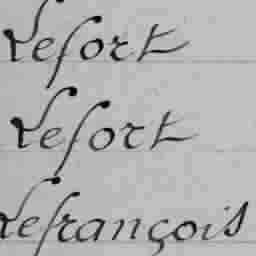 Lefort
Lefort
Lefrançois